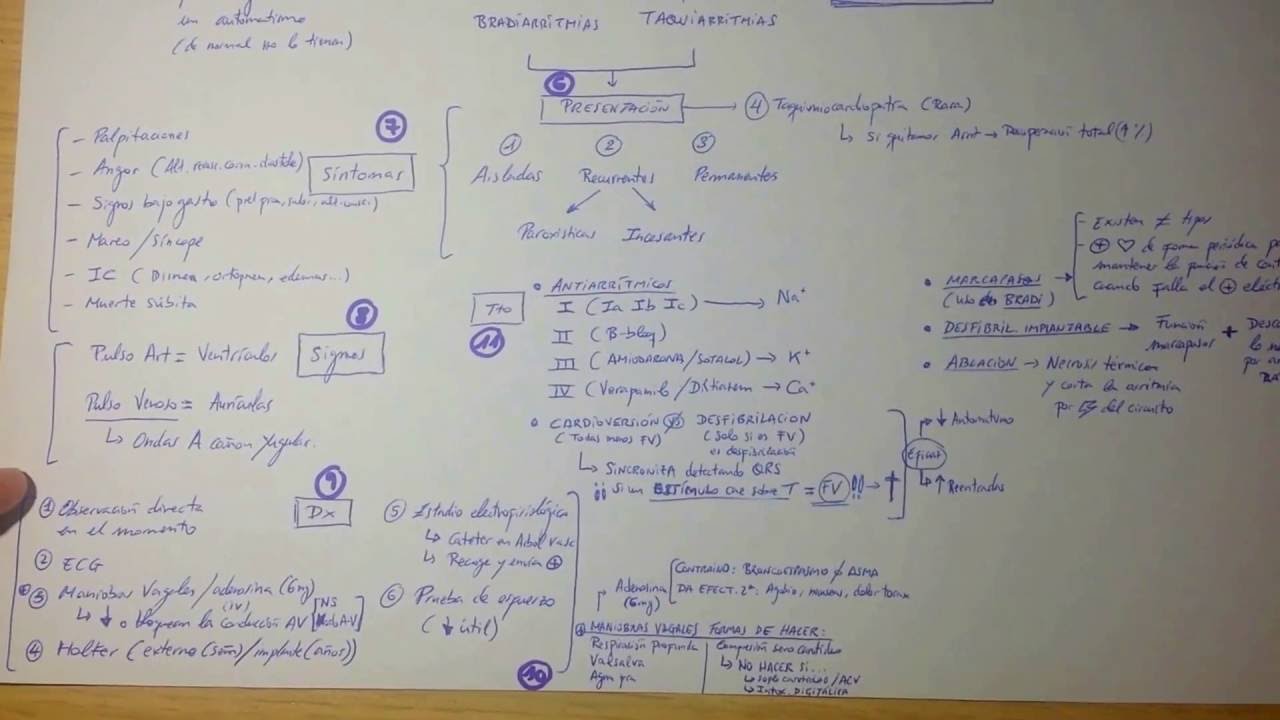 un automatismo
(de normal no lo tienen)
BRADIARRITMIAS TAQUIARRITMIAS
6
PRESENTACIÓN
4 Taquimiocardiopatía (Rara)
↳ Si quitamos Arrit → Recuperación total (4%)
1 2 3
Aisladas Recurrentes Permanentes
Paroxísticas Incesantes
7
Síntomas
- Palpitaciones
- Angor (Alt. coro. diástole)
- Signos bajo gasto
- Mareo/Síncope
- IC (Disnea, ortopnea, edemas...)
- Muerte súbita
8
Signos
Pulso Art = Ventrículos
Pulso Venoso = Aurículas
↳ Ondas A cañon Yugular.
9
Dx
1 Observación directa
en el momento
2 ECG
3 Maniobras Vagales/adenosina (6mg)
(iv)
↳ ↓ o bloquean la conducción AV [NS
Nodo A-V]
4 Holter (externo (sem)/implante (años))
5 Estudio electrofisiológico
↳ Cateter en Arbol vasc
↳ Recoge y envía ⊕
6 Prueba de esfuerzo
(↓ útil)
10
Adenosina
(6mg)
CONTRAIND: BRONCOESPASMO / ASMA
DA EFECT. 2º: Agobio, nauseas, dolor torax
MANIOBRAS VAGALES FORMAS DE HACER:
Respiración profunda
Valsalva
Agua fría
Compresión seno carotídeo
↳ NO HACER SI...
↳ soplo carotídeo/ACV
↳ Intox. DIGITÁLICA
Tto
11
• ANTIARRÍTMICOS
I (Ia Ib Ic) → Na⁺
II (B-bloq)
III (AMIODARONA/SOTALOL) → K⁺
IV (Verapamilo/Diltiazem → Ca⁺
• CARDIOVERSIÓN VS DESFIBRILACION
(Todas menos FV) (Solo si es FV)
es desfibrilación
↳ SINCRONIZA detectando QRS
¡¡ Si un ESTÍMULO cae sobre T = FV !! → †
Eficaz
↓ Automatismo
↑ Reentradas
• MARCAPASOS →
(Uso en BRADI)
- Existen ≠ tipos
- ⊕ ♡ de forma periódica
mantener la función de
cuando falle el ⊕
• DESFIBRIL. IMPLANTABLE → Función
marcapasos +
• ABLACIÓN → Necrosis térmica
y corta la arritmia
por del circuito